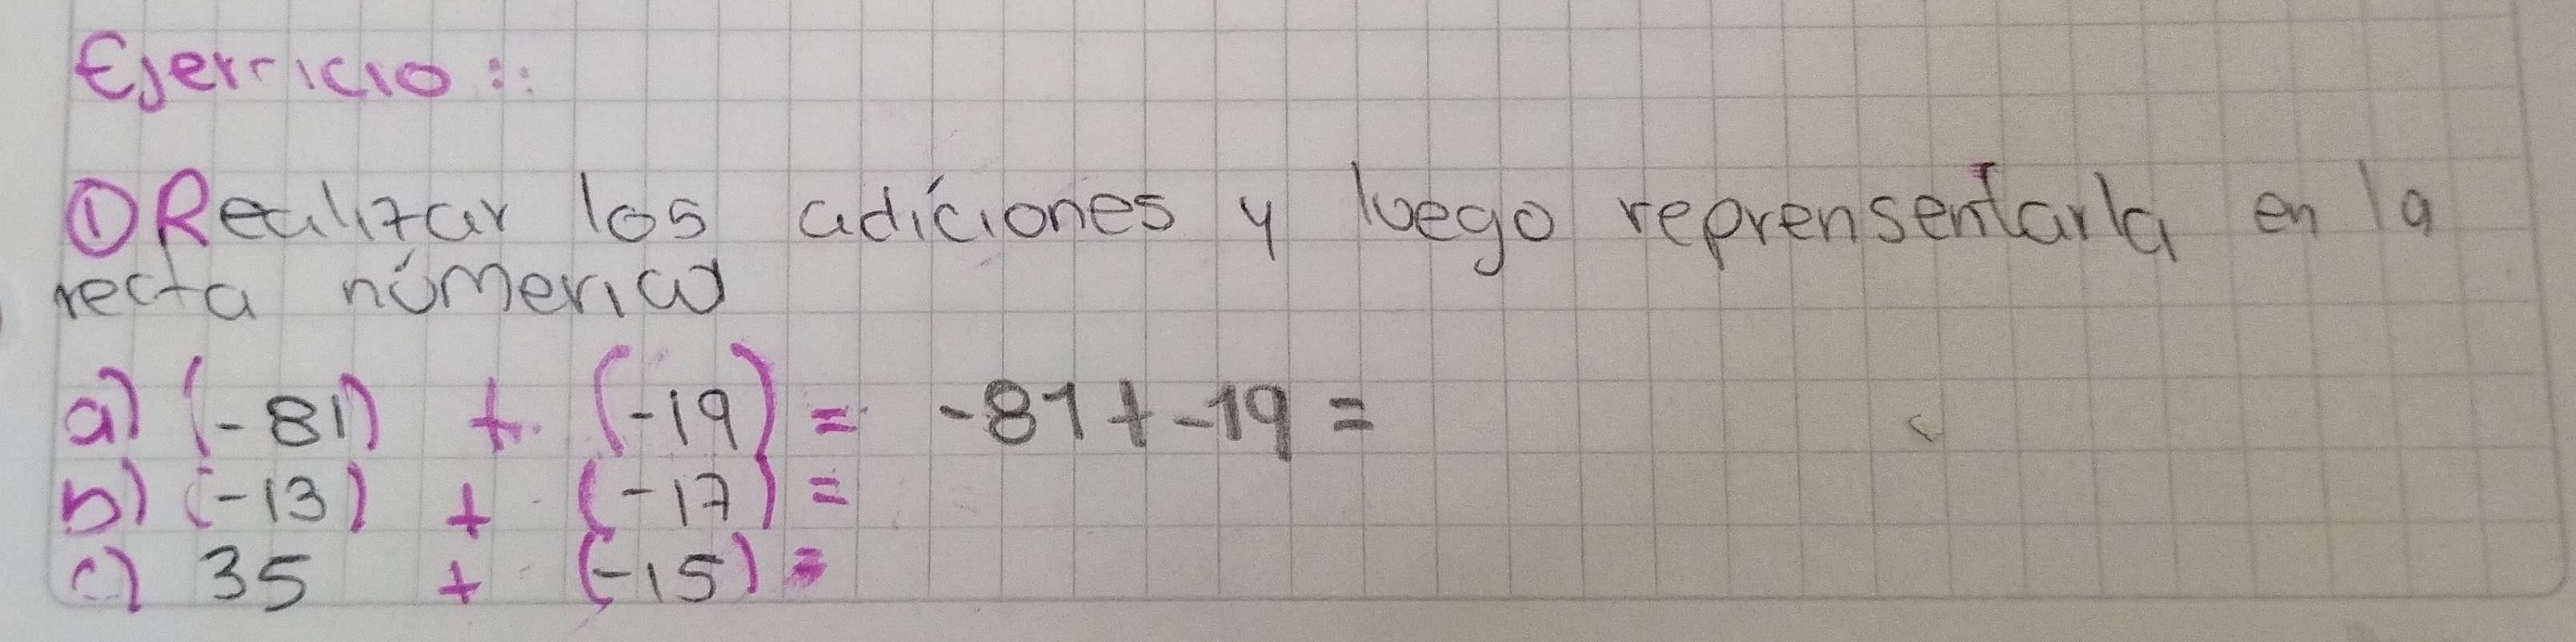 Ejerricio::
① Realizar los adiciones y luego reprensentarla en la
recta númerica
a) (-81) + (-19) = -81+-19=
b) (-13) + (-17) =
c) 35 + (-15) =